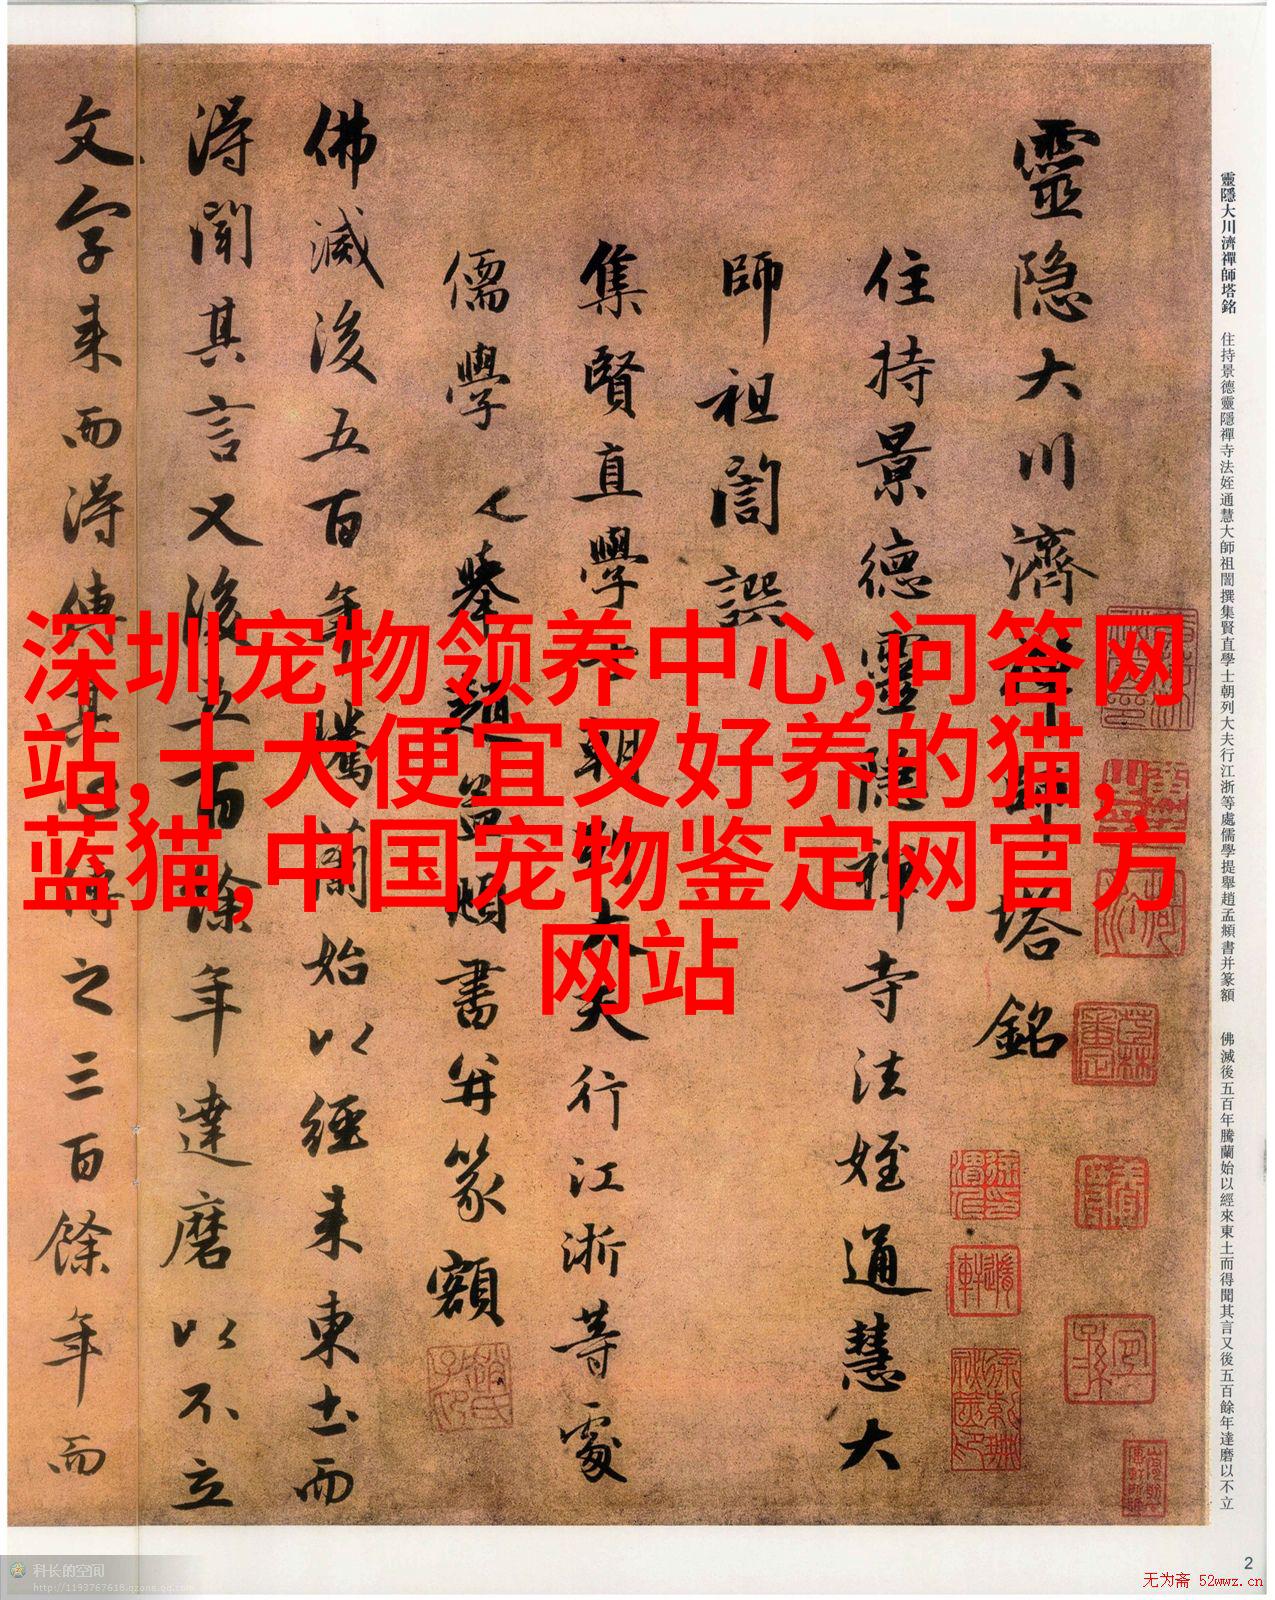 靈隐大川濟禪師塔銘
住持景德靈隠禅寺法姪通慧大
師祖誾譔
集賢直學士朝列大夫行江浙等處
儒學提舉趙孟頫書并篆額
佛滅後五百年騰蘭始以經来東土而
得聞其言又後五百餘年達磨以不立
文字来而得傳其心傳之三百餘年而
靈隱大川濟禪師塔銘 住持景德靈隱禪寺法姪通慧大師祖誾撰集賢直學士朝列大夫行江浙等處儒學提舉趙孟頫書并篆額 佛滅後五百年騰蘭始以經來東土而得聞其言又後五百餘年達磨以不立
深圳宠物领养中心,问答网
站,十大便宜又好养的猫,
蓝猫,中国宠物鉴定网官方
网站
2
科长的空间
http://1193767618.qzone.qq.com
无为斋 52wwz.cn